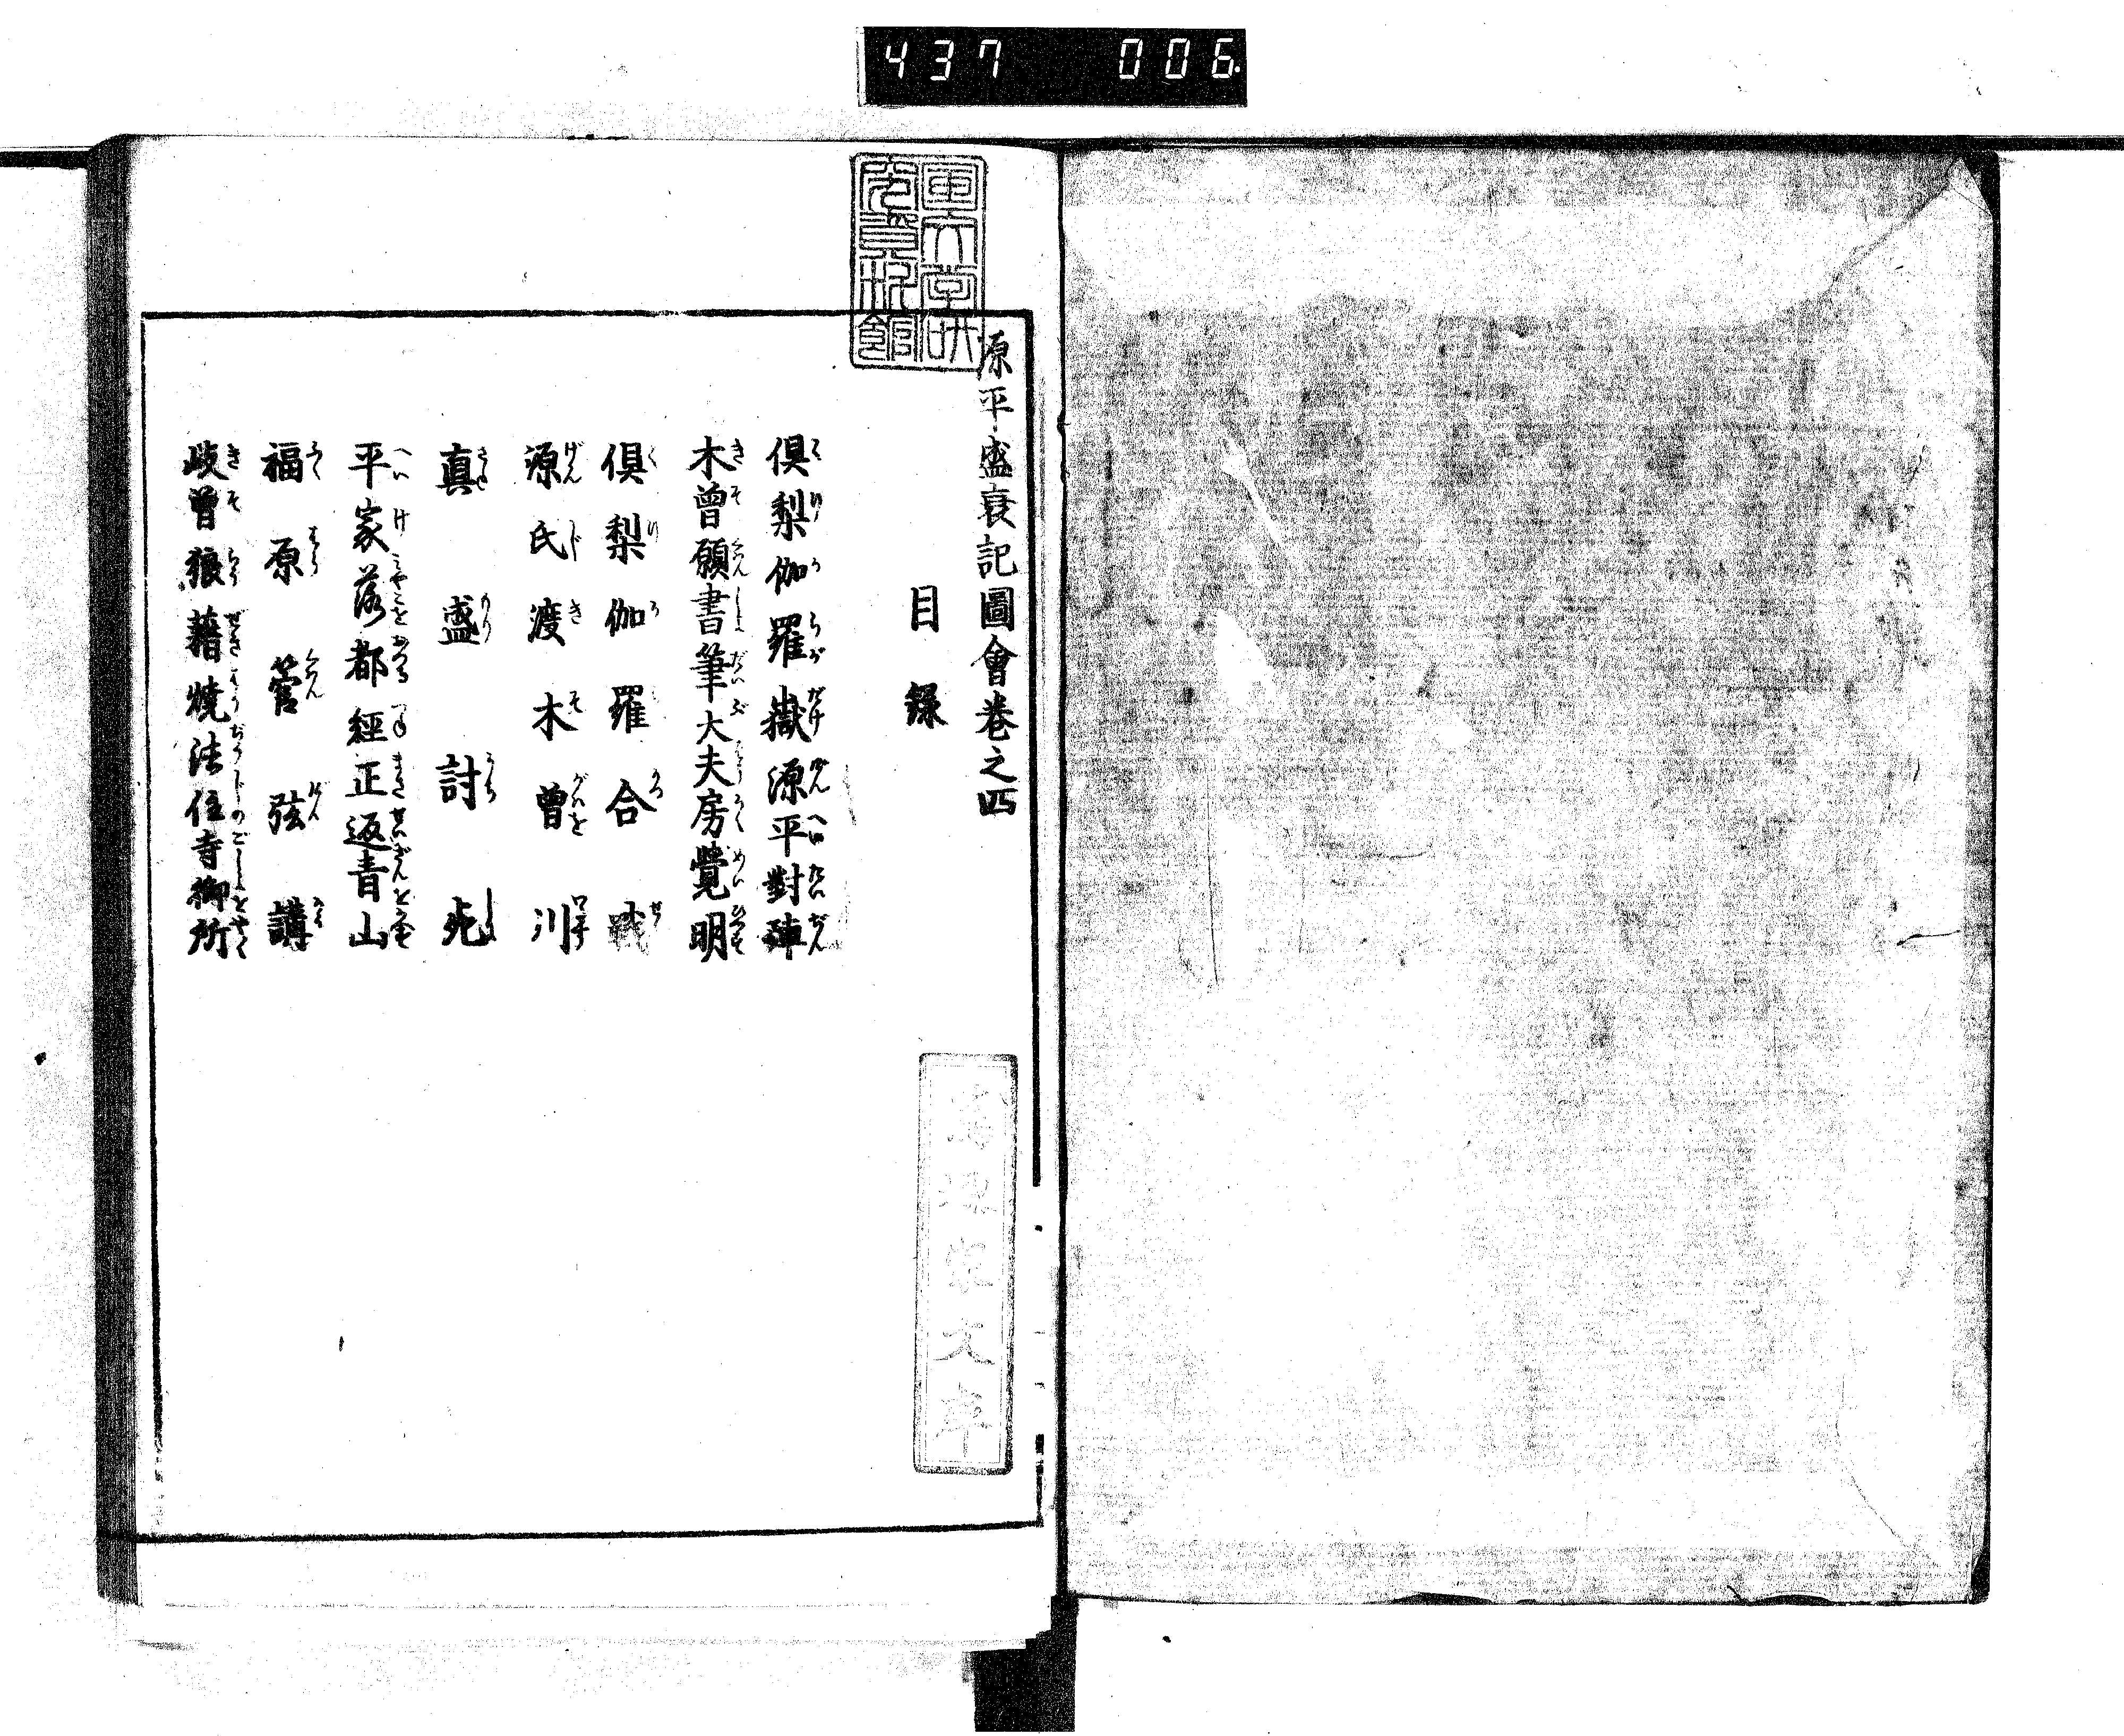 437 006.
源平盛衰記圖會巻之四
目録
倶梨伽羅嶽源平對陣
木曾願書筆大夫房覺明
倶梨伽羅合戦
源氏渡木曾川
真盛討死
平家落都經正返青山
福原管弦講
岐曾狼藉焼法住寺御所